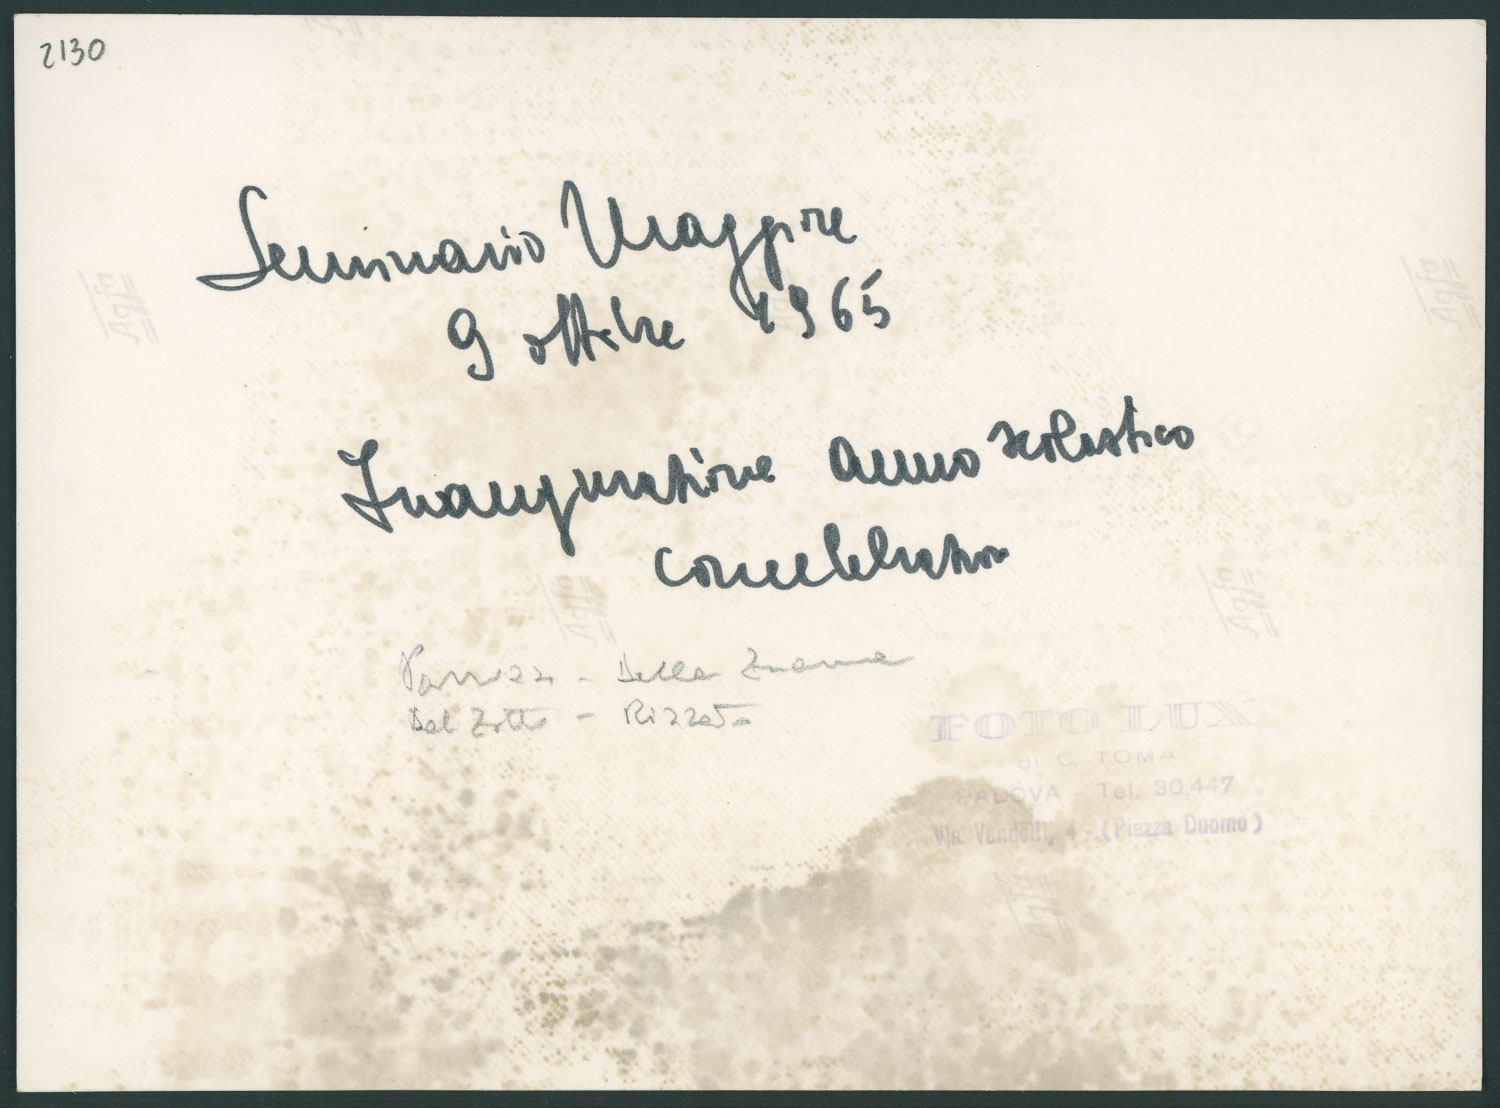 2130
Seminario Maggiore
9 ottobre 1965
Inaugurazione anno scolastico
concelebrazione
Della
Del Zotto - Rizzato
FOTO LUX
di C. TOMA
PADOVA - Tel. 30.447
Via Vandelli, 4 - (Piazza Duomo)
Agfa
Agfa
Agfa
Agfa
Agfa